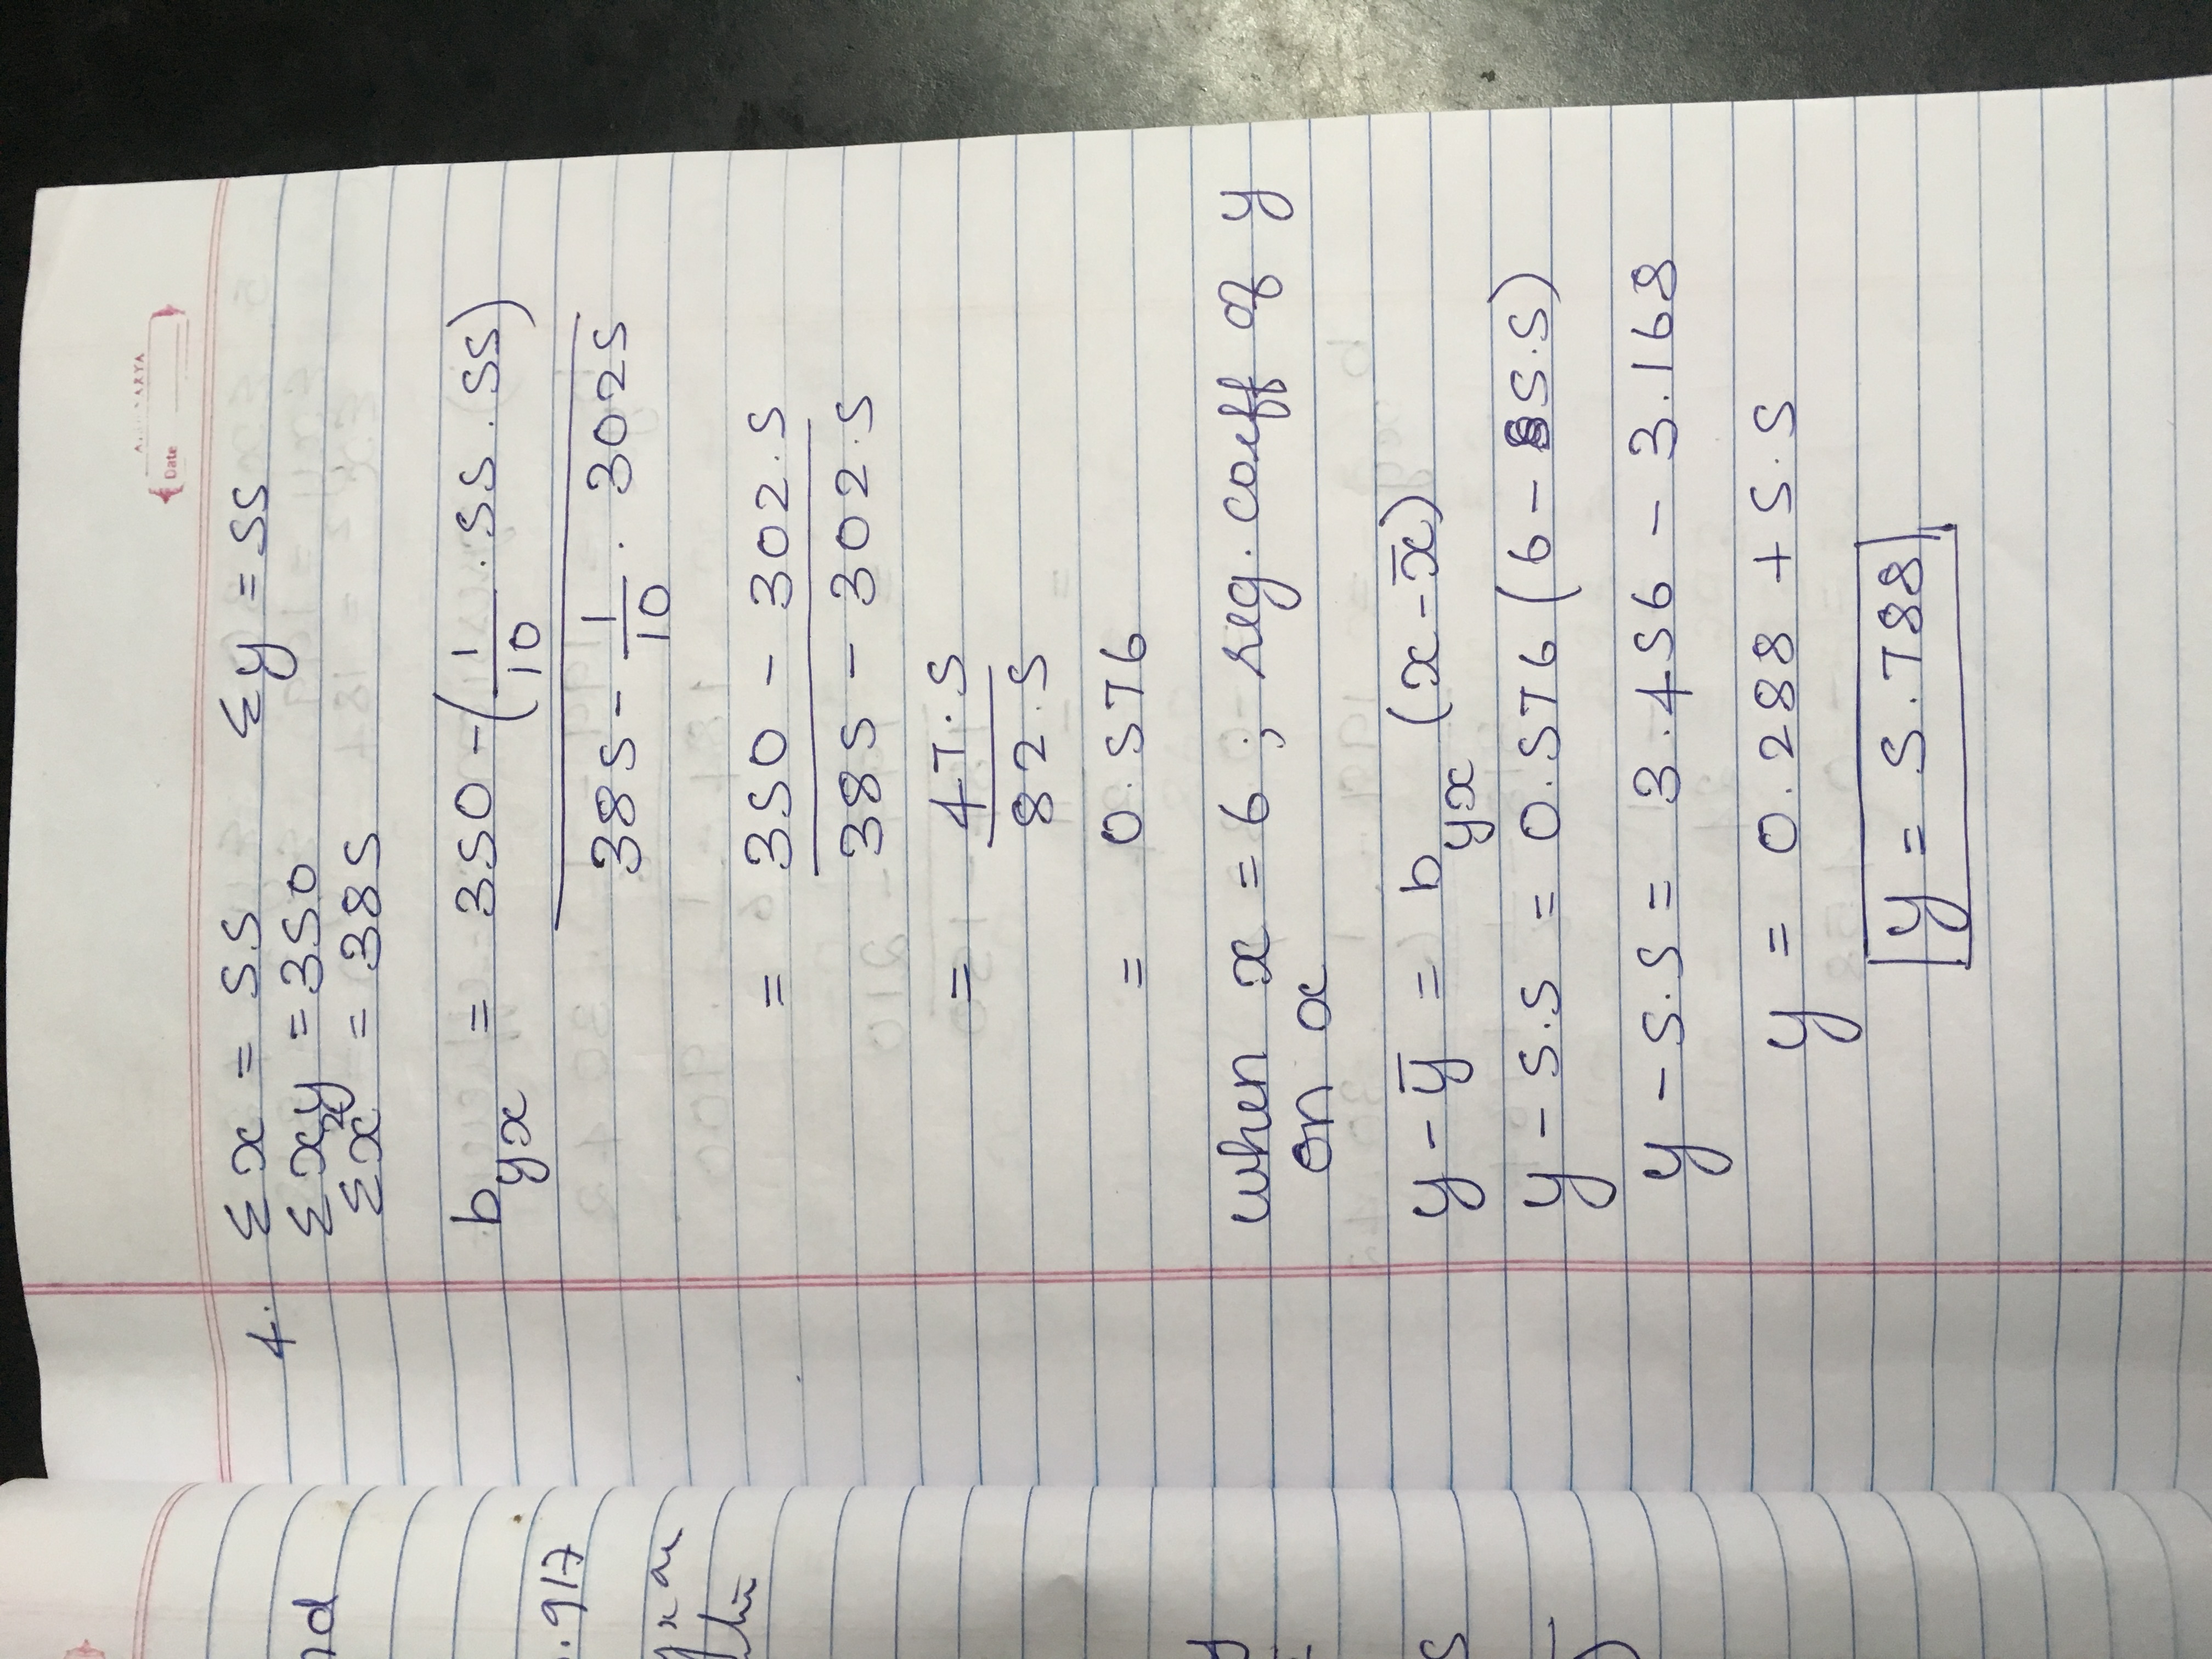 nd
.917
Date
4. Σx = 55 Σy = 55
Σxy = 350
Σx² = 385
b_yx = 350 - (1/10 . 55 . 55)
385 - 1/10 . 3025
= 350 - 302.5
385 - 302.5
= 47.5
82.5
= 0.576
when x = 6 ; reg. coeff of y
on x
y - ȳ = b_yx (x - x̄)
y - 5.5 = 0.576 (6 - 5.5)
y - 5.5 = 3.456 - 3.168
y = 0.288 + 5.5
y = 5.788